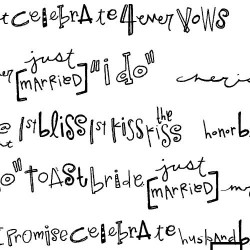 celebrate 4ever vows
just
[MARRIED] "i do" cheris
1st bliss 1st kiss the kiss honor b
o" toast bride just [MARRIED]
i promise celebrate husband b